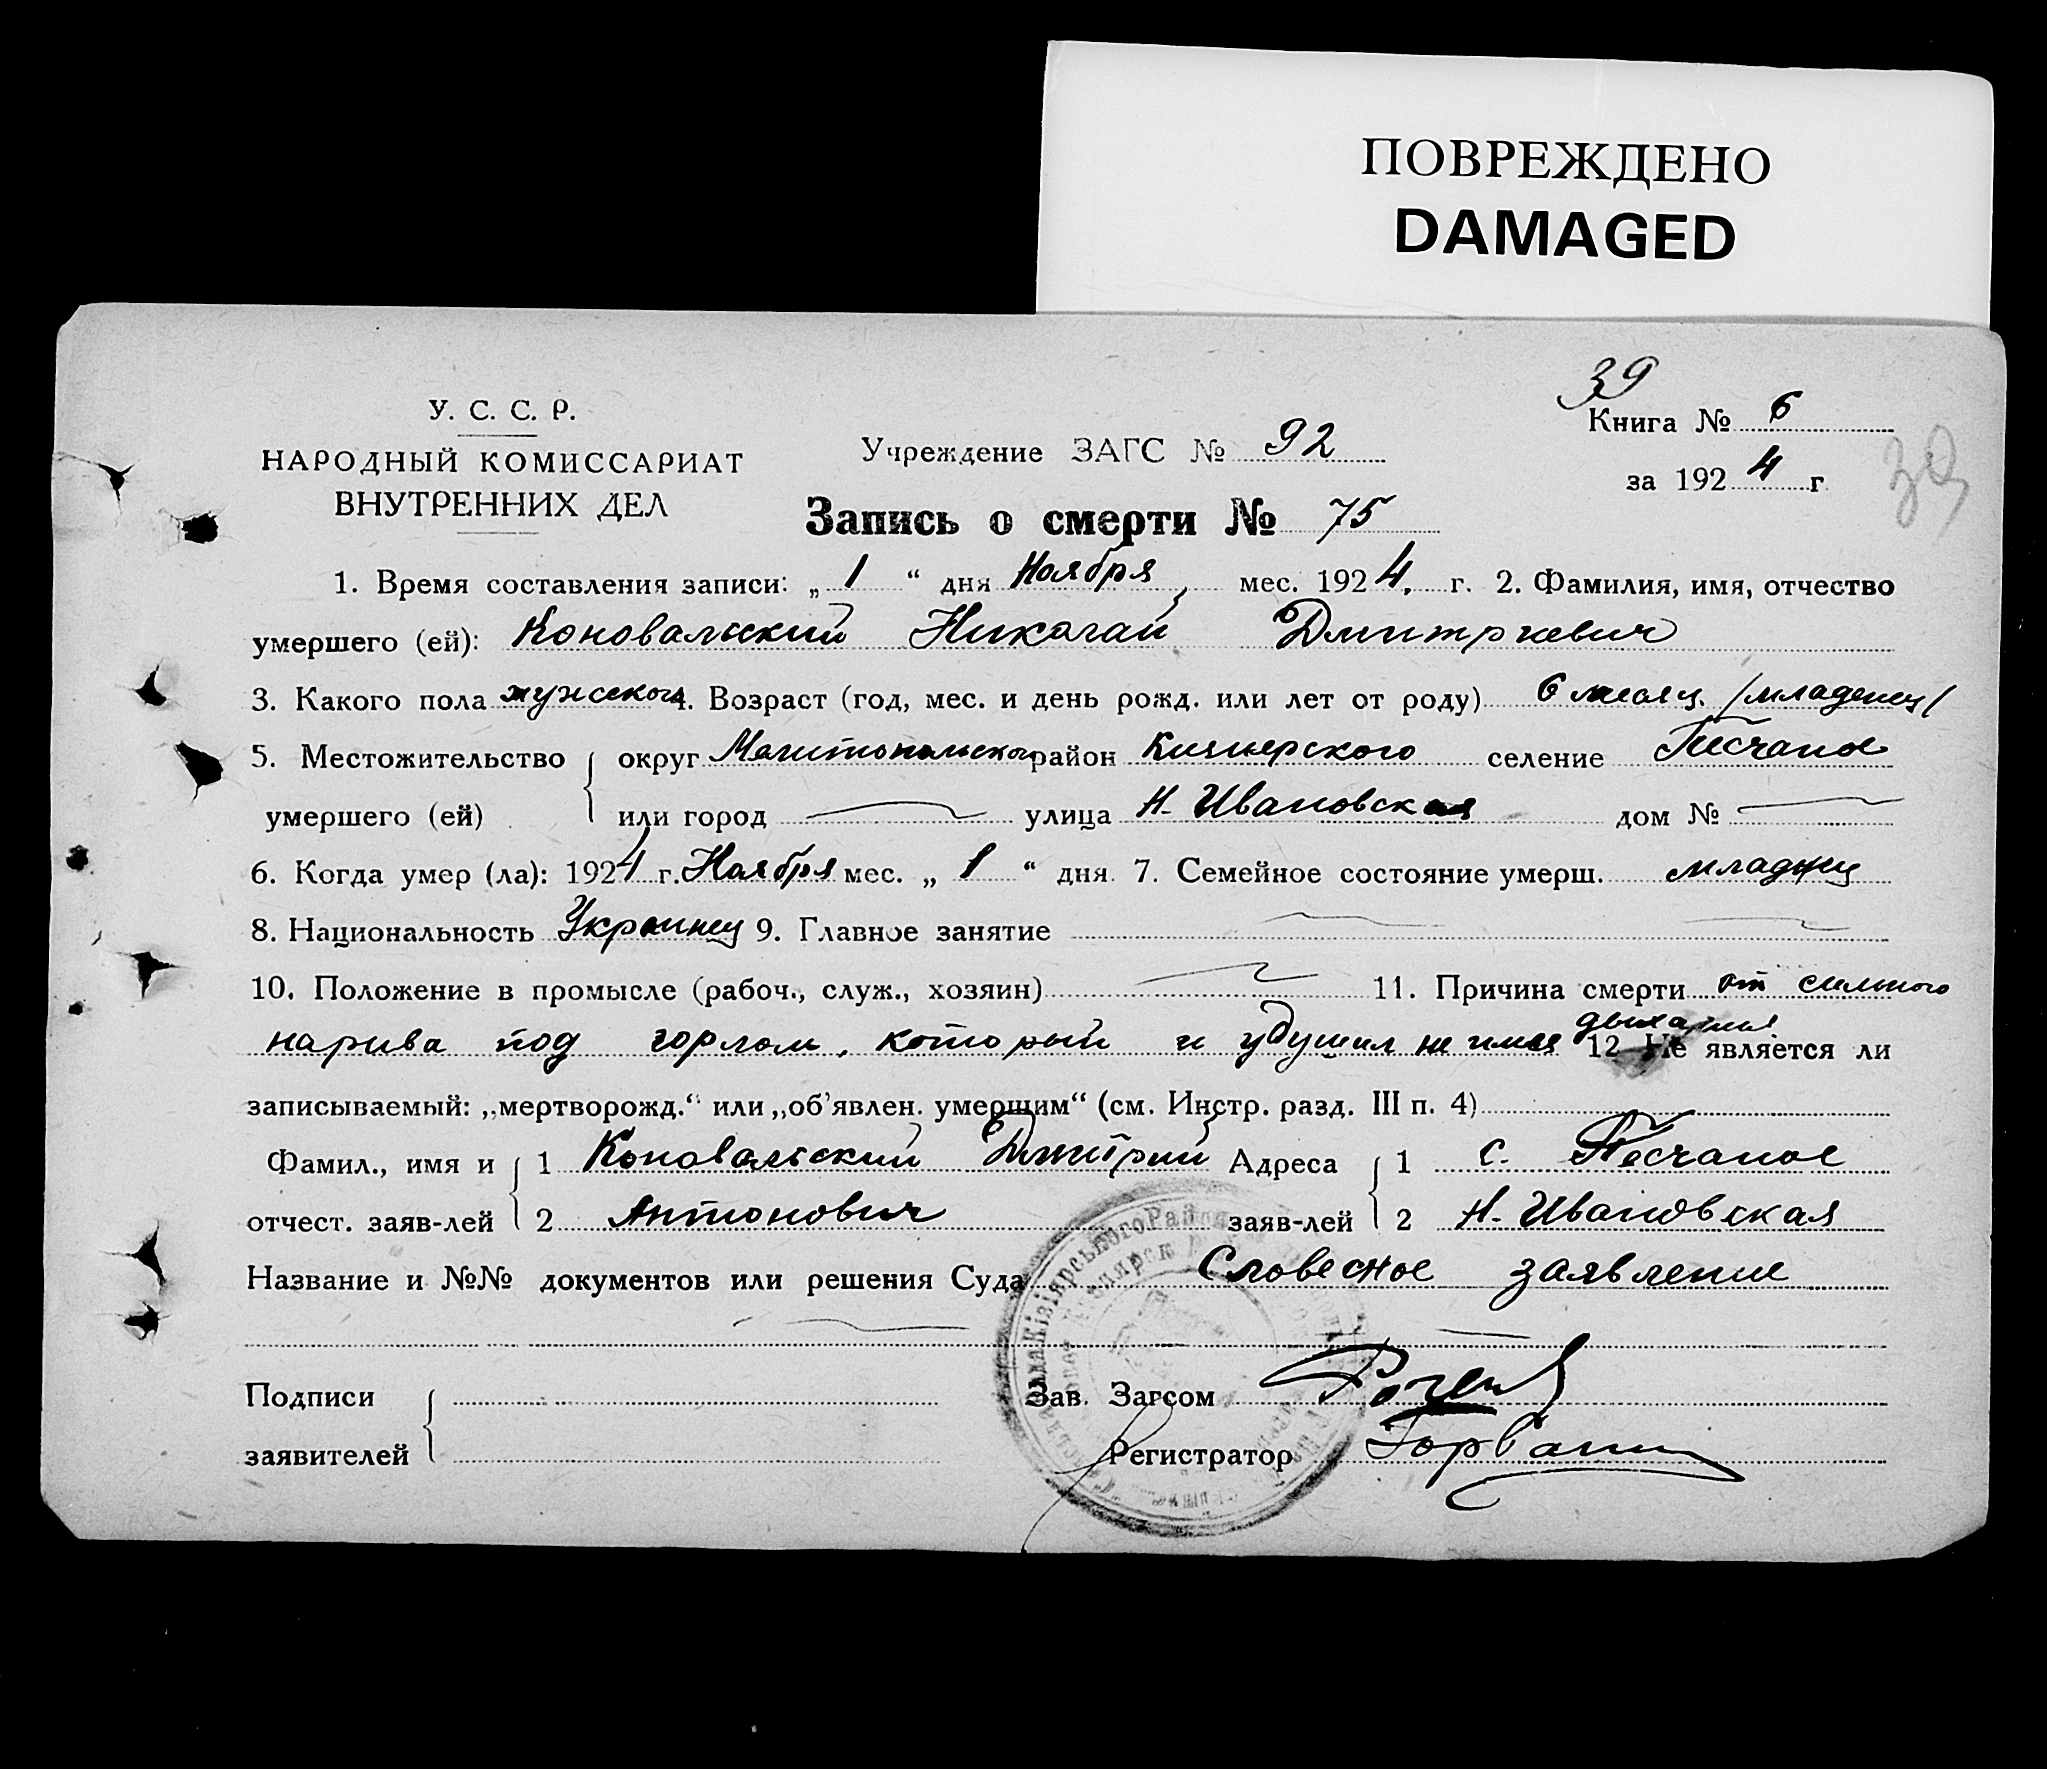 ПОВРЕЖДЕНО
DAMAGED
39
У. С. С. Р.
НАРОДНЫЙ КОМИССАРИАТ
ВНУТРЕННИХ ДЕЛ
Учреждение ЗАГС № 92
Книга № 6
за 1924 г
39
Запись о смерти № 75
1. Время составления записи: „ 1 “ дня Ноября мес. 1924. г. 2. Фамилия, имя, отчество
умершего (ей): Коновальский Николай Дмитриевич
3. Какого пола мужского 4. Возраст (год, мес. и день рожд. или лет от роду) 6 месяц. /младенец/
5. Местожительство округ Мелитопольского район Кизиерского селение Песчаное
умершего (ей) или город улица Н. Ивановская дом №
6. Когда умер (ла): 1924 г. Ноября мес. „ 1 “ дня 7. Семейное состояние умерш. младенец
8. Национальность Украинец 9. Главное занятие
10. Положение в промысле (рабоч., служ., хозяин) 11. Причина смерти от сильного
нарива под горлом, который и удушил не имея дыхания 12 Не является ли
записываемый: „мертворожд.“ или „об'явлен. умершим“ (см. Инстр. разд. III п. 4)
Фамил., имя и 1 Коновальский Дмитрий Адреса 1 с. Песчаное
отчест. заяв-лей 2 Антонович заяв-лей 2 Н. Ивановская
Название и №№ документов или решения Суда Словесное заявление
Подписи Зав. Загсом
заявителей Регистратор